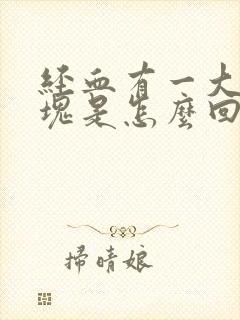 經血有一大
塊是怎麼回
掃晴娘